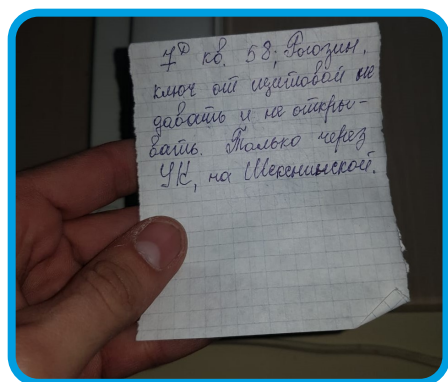 7Д кв. 58; Рогозин.
ключ от щитовой не
давать и не откры-
вать. Только через
УК, на Шекснинской.